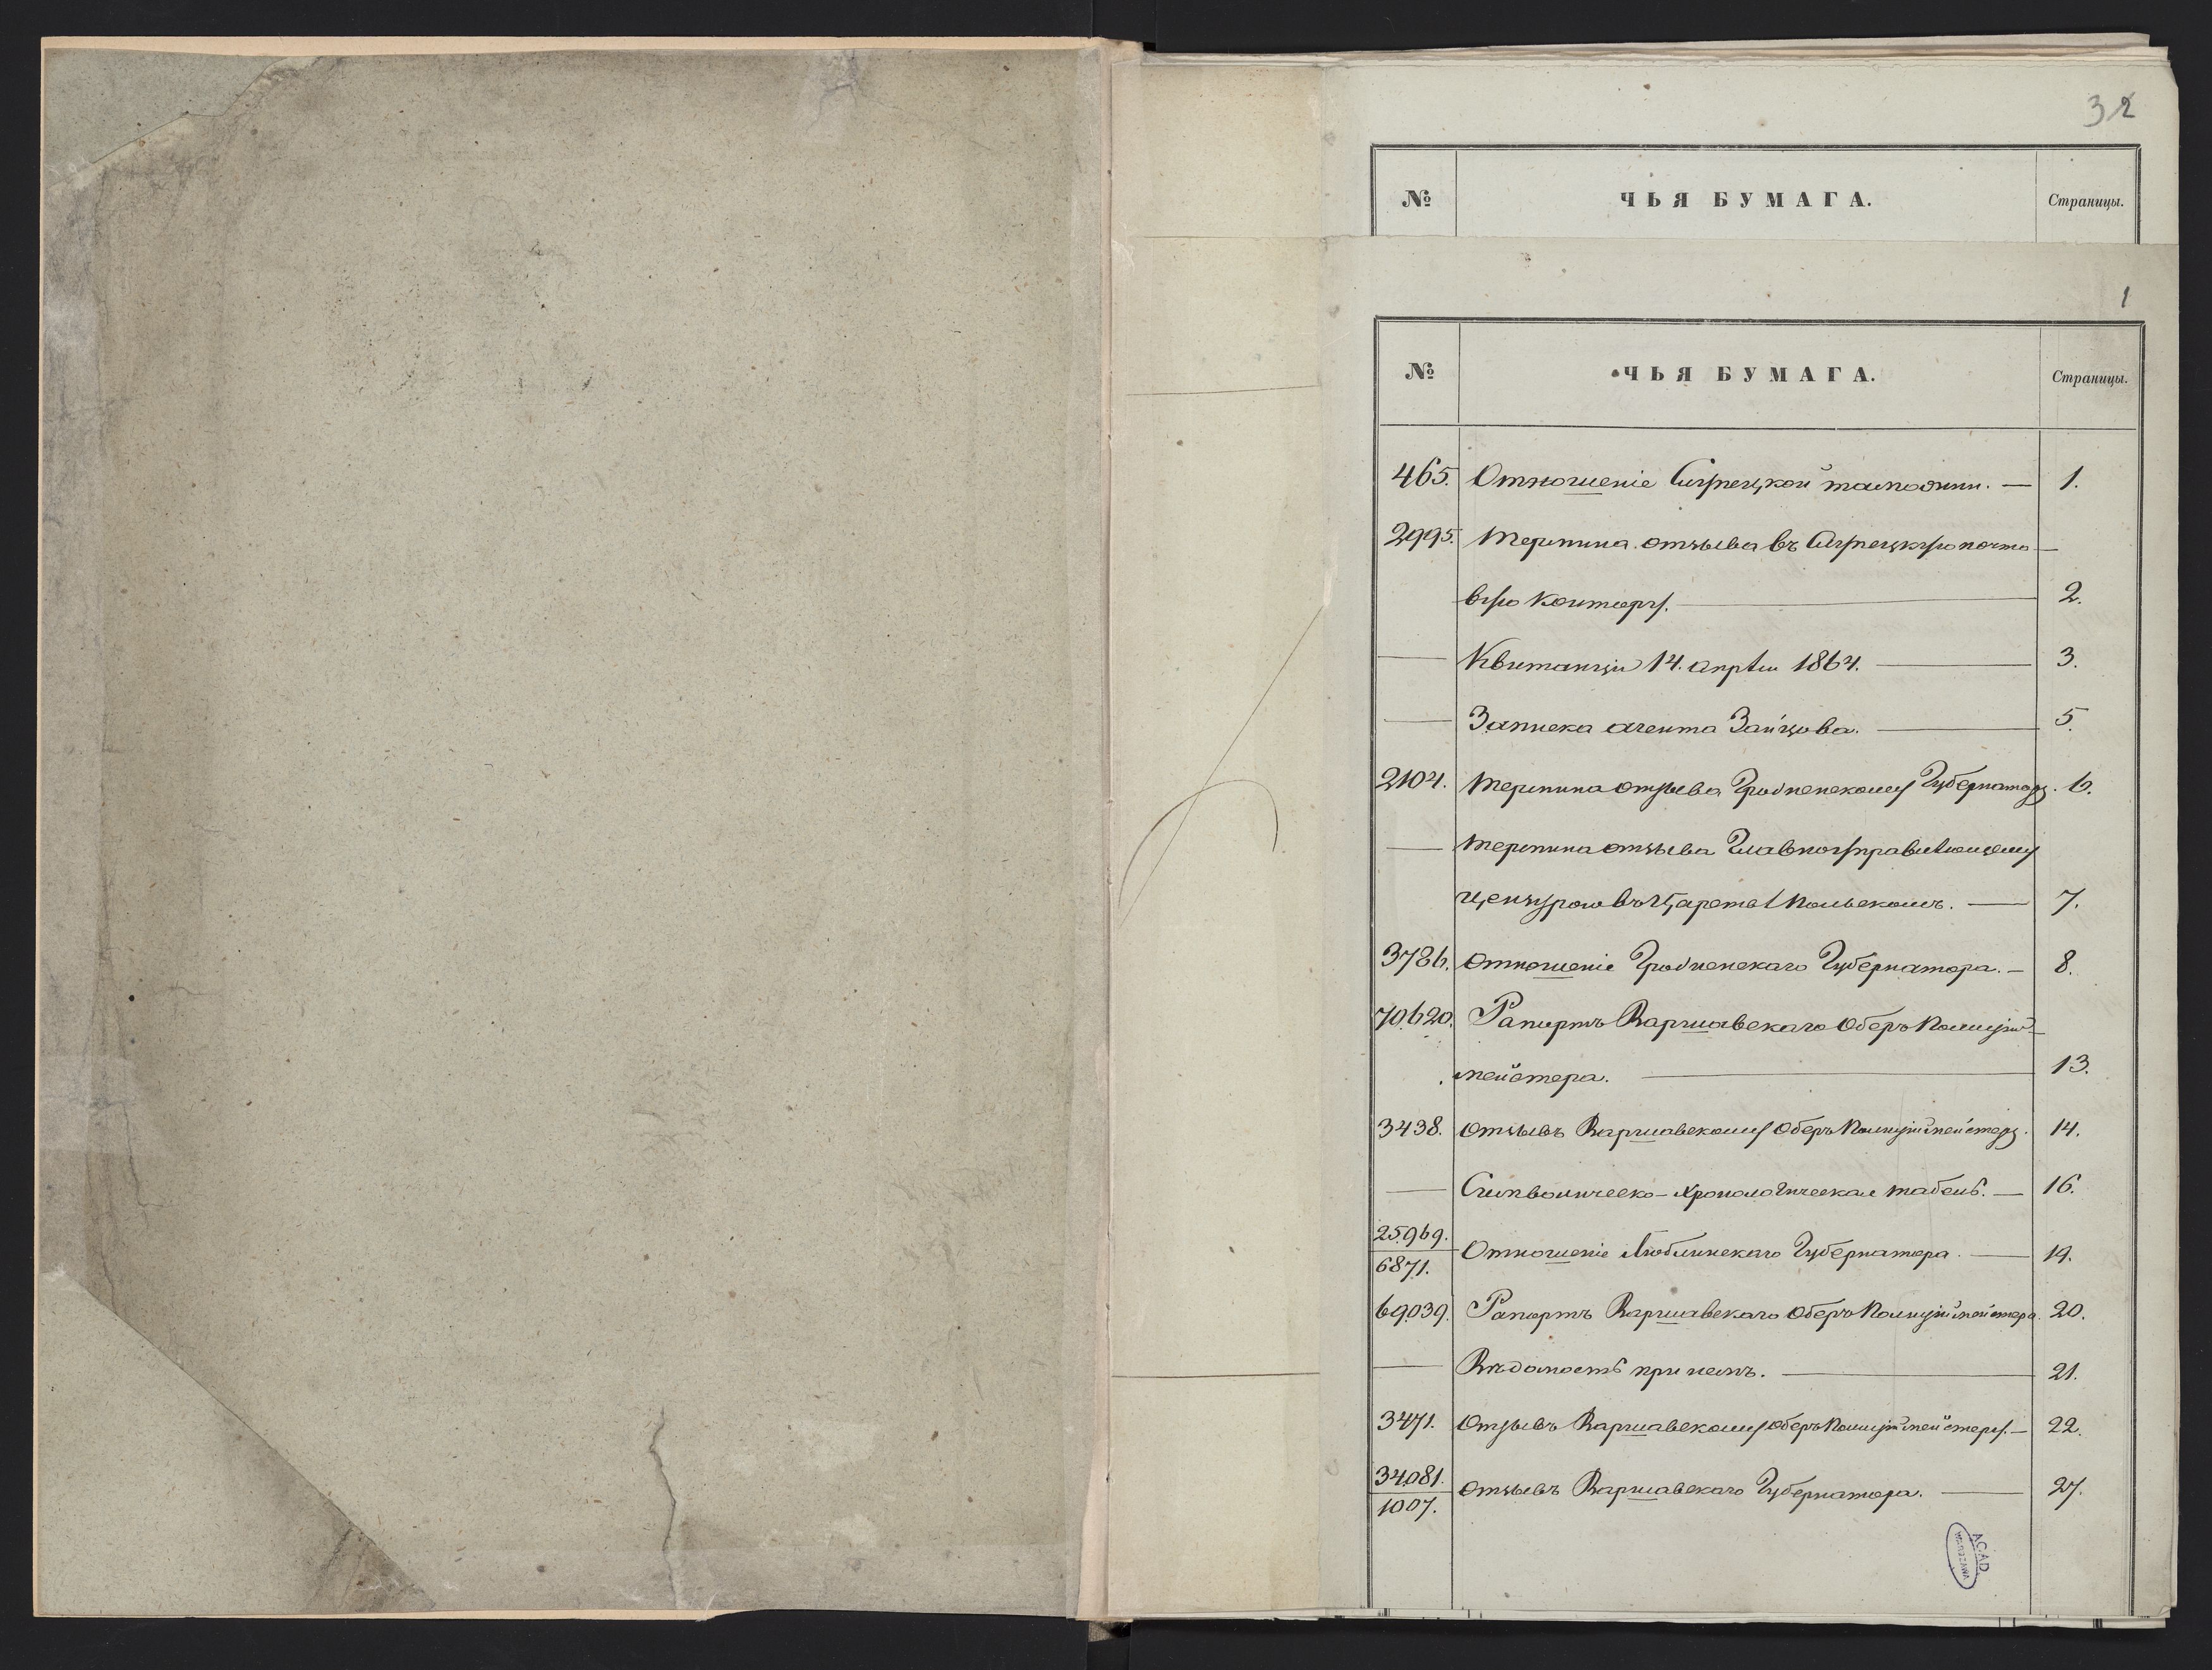 32
№ ЧЬЯ БУМАГА. Страницы.
1
№ ЧЬЯ БУМАГА. Страницы.
465. Отношеніе таможни. — 1.
2995. Черновая отзыва въ почто-
вую Контору. — 2.
— Квитанція 14. апрѣля 1864. — 3.
— Записка агента Зайцова. — 5.
2104. Черновая отзыва Гродненскому Губернатору. 6.
— Черновая отзыва Главноуправляющему
цензурою въ Царствѣ Польскомъ. — 7.
3786. Отношеніе Гродненскаго Губернатора. — 8.
70.620. Рапортъ Варшавскаго Оберъ Полицій-
мейстера. — 13.
3438. Отзывъ Варшавскому Оберъ Полиціймейстеру. 14.
— Символическо-Хронологическая табель. — 16.
25.969.
6871. Отношеніе Люблинскаго Губернатора. — 19.
69.039. Рапортъ Варшавскаго Оберъ Полиціймейстера. 20.
— Вѣдомость при немъ. — 21.
3471. Отзывъ Варшавскому Оберъ Полиціймейстеру. — 22.
34.081.
1007. Отзывъ Варшавскаго Губернатора. — 27.
AGAD
WARSZAWA